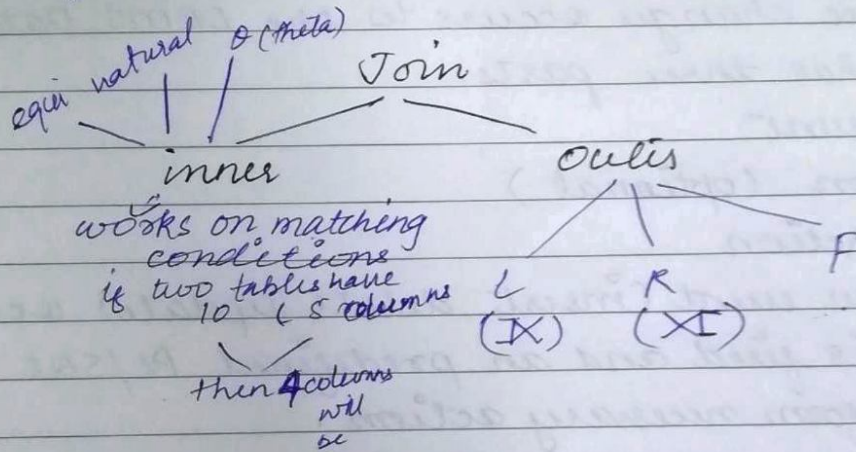 equi natural θ (theta)
Join
inner Outer
works on matching
conditions
if two tables have
10 ( 5 columns
L R F
(IX) (XI)
then 4 columns
will
be